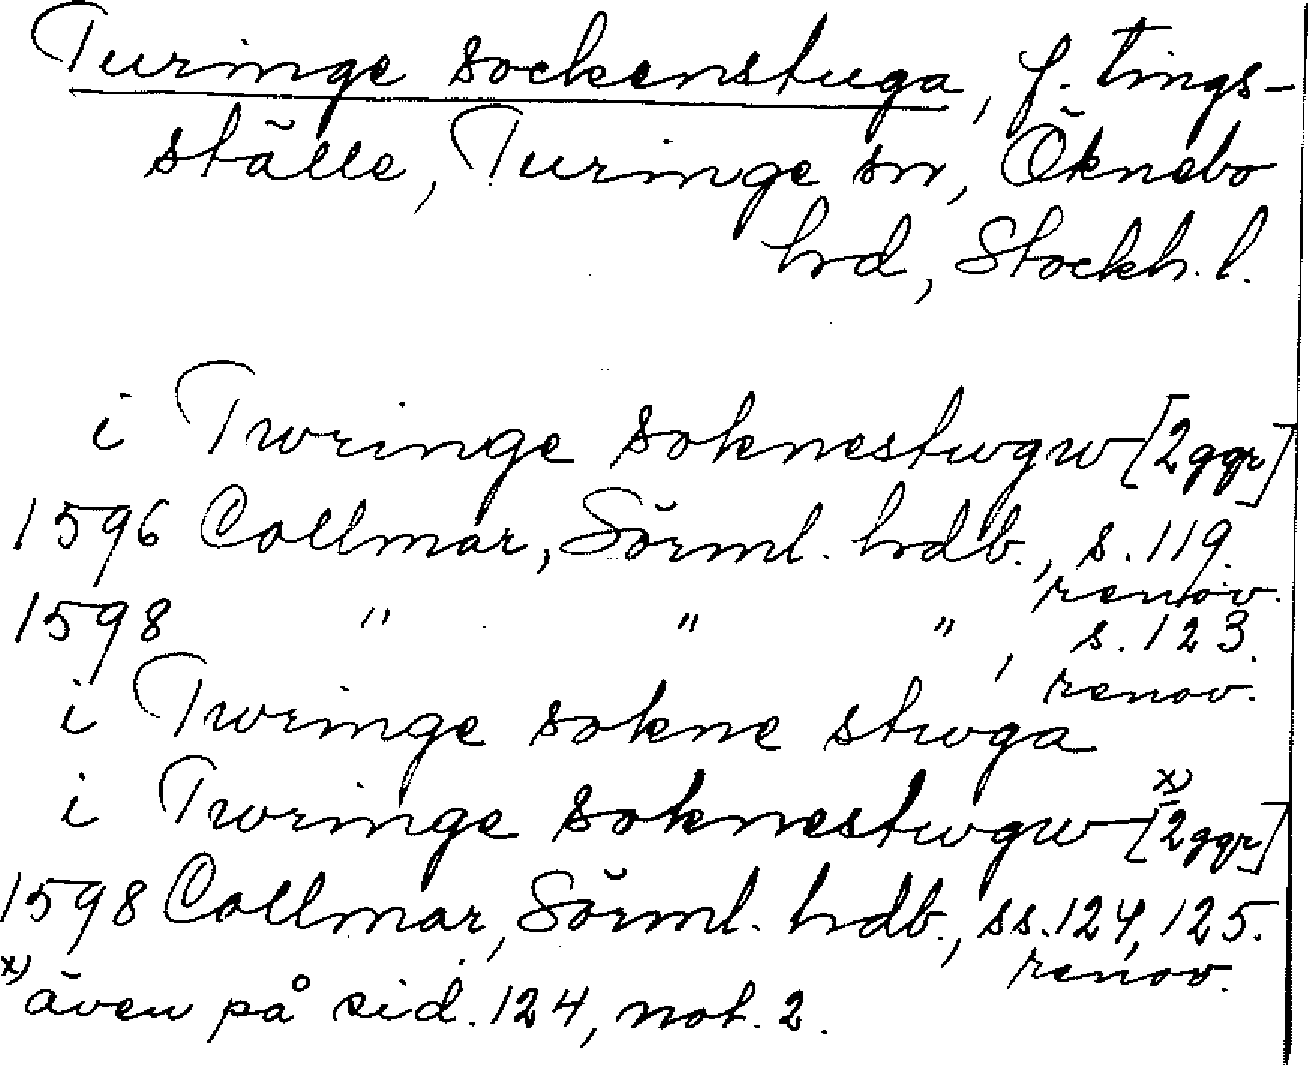 Turinge sockenstuga, f. tings-
ställe, Turinge sn, Öknebo
hrd, Stockh. l.
i Twringe soknestwgw [2ggr]
1596 Collmar, Sörml. hrdb., s. 119.
renov.
1598 " " " , s. 123.
renov.
i Twringe sokne stwga
i Twringe soknestwgw x) [2ggr]
1598 Collmar, Sörml. hrdb., ss. 124, 125.
renov.
x) även på sid. 124, not. 2.